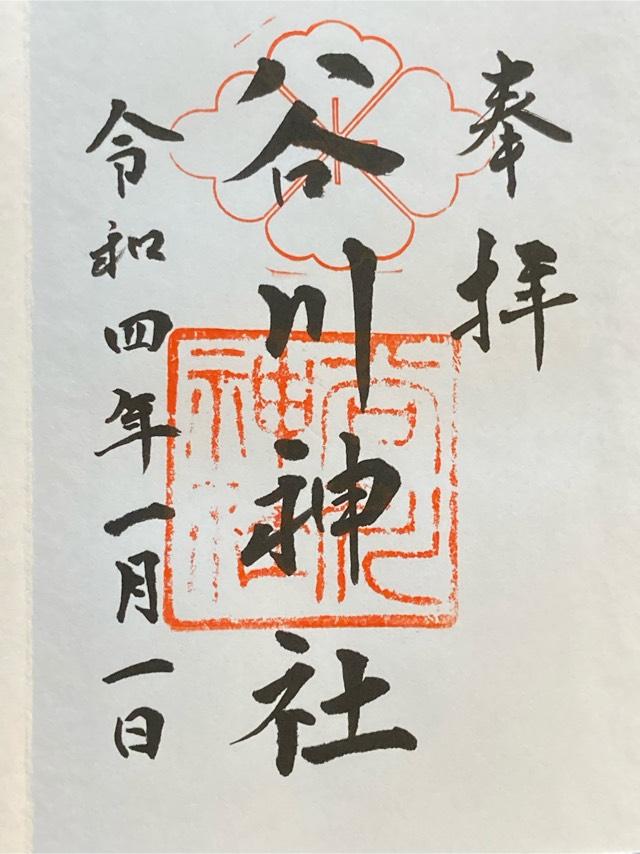 奉拝
谷川神社
令和四年一月一日